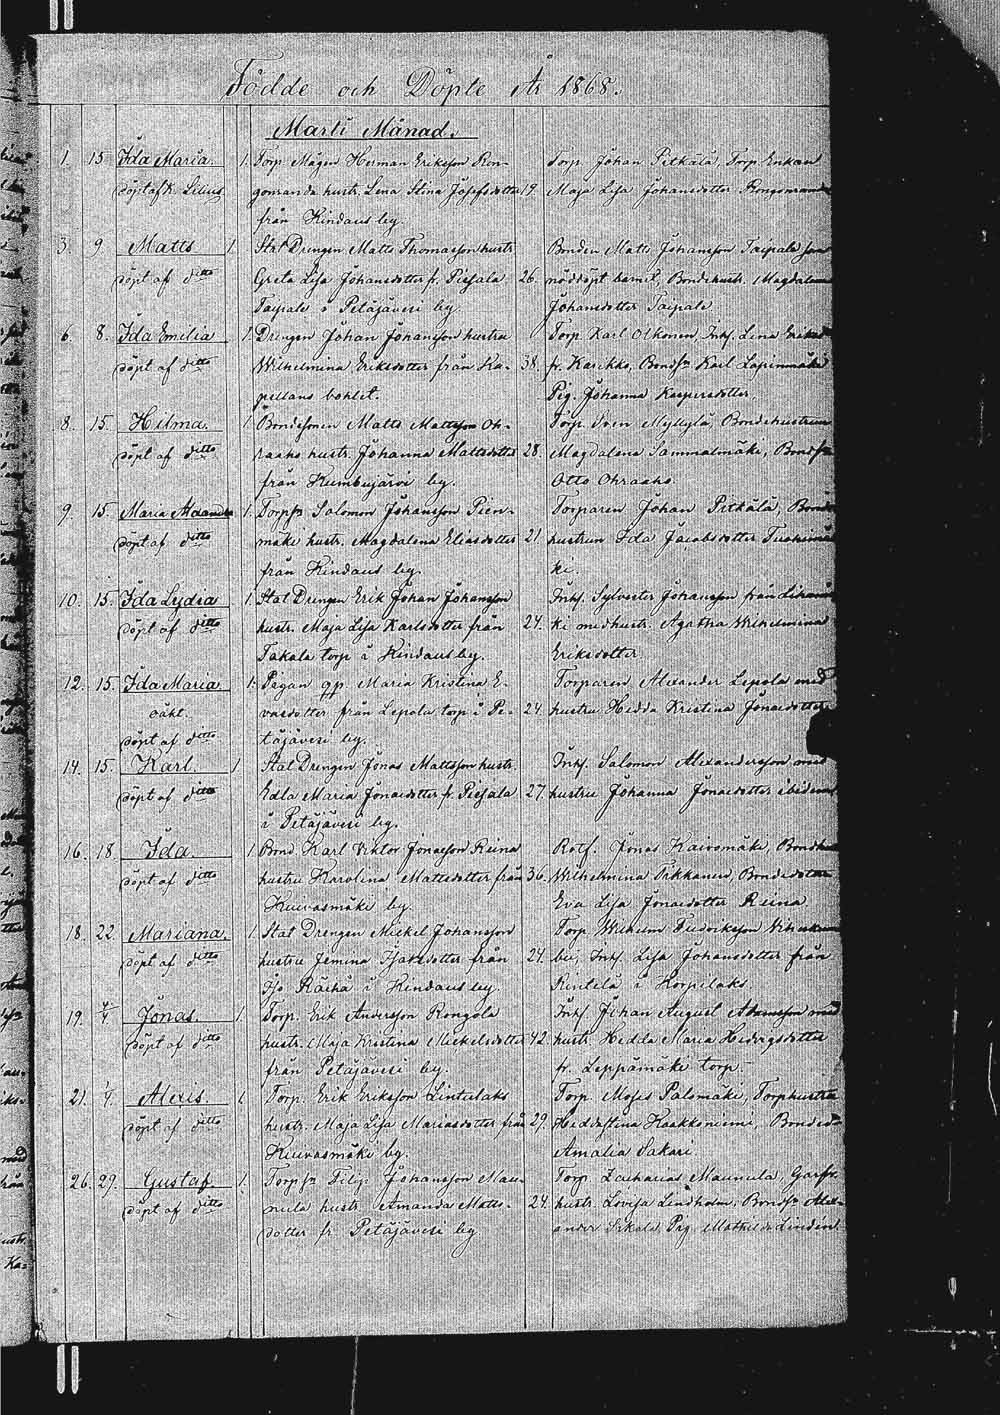 Födde och Döpte År 1868.
Martii Månad.
1. 15. Ida Maria. 1. Torp. Mågen Herman Eriksson Ron- Torp. Johan Pitkälä, Torp. Enkan
döpt af K. Silius gonranda hustr. Lena Stina Josefsdotter 19. Maja Lisa Johansdotter Rongonranda
från Kindaus by.
3. 9 Matts 1. Stat Drengen Matts Thomasson hustr. Bonden Matts Johansson Taipale som
döpt af ditto Greta Lisa Johansdotter fr. Piesala 26. nöddöpt barnet, Bondehustr. Magdalena
Taipale i Petäjävesi by. Johansdotter Taipale
6. 8. Ida Emilia 1. Drengen Johan Johansson hustru Torp. Karl Olkonen, Inhs. Lena
döpt af ditto Wilhelmina Eriksdotter från Ka- 38. fr. Karikko, Bondes. Karl Lapinmäki
pellans bohlet. Pig. Johanna Kaspersdotter.
8. 15. Hilma. 1. Bondesonen Matts Mattsson Oh- Torp. Sven Myllylä, Bondehustrun
döpt af ditto raaho hustr. Johanna Mattsdotter 28. Magdalena Sammalmäki, Bondes.
från Kumbujärvi by. Otto Ohraaho.
9. 15. Maria 1. Torps. Salomon Johansson Pien- Torparen Johan Pitkälä, Bonde
döpt af ditto mäki hustr. Magdalena Eliasdotter 21. hustrun Ida Jacobsdotter
från Kindaus by. ki.
10. 15. Ida Lydia 1. Stat Drengen Erik Johan Johansson Inhs. Sylvester Johansson från
döpt af ditto hustr. Maja Lisa Karlsdotter från 24. ki med hustr. Agatha Wilhelmina
Takala torp i Kindaus by. Eriksdotter.
12. 15. Ida Maria 1. Pigan Maria Kristina E- Torparen Alexander Lepola med
oäkt. vasdotter från Lepola torp i Pe- 24. hustru Hedda Kristina Jonaedotter
döpt af ditto täjävesi by.
14. 15. Karl. 1. Stat Drengen Jonas Mattsson hustr. Inhs. Salomon Alexandersson med
döpt af ditto Edla Maria Jonaedotter fr. Piesala 27. hustru Johanna Jonaedotter ibidem
i Petäjävesi by.
16. 18. Ida. 1. Bond. Karl Viktor Jonasson Reina Rotf. Jonas Kaivomäki, Bondhu
döpt af ditto hustru Karolina Mattsdotter från 36. Wilhelmina Pikkanen, Bondedotter
Kuivasmäki by. Eva Lisa Jonaedotter Reina
18. 22. Mariana. 1. Stat Drengen Mickel Johansson Torp. Wilhelm Fredriksson
döpt af ditto hustru Jemina från 24. Inhs. Lisa Johansdotter från
Räihä i Kindaus by. Rintelä i Korpilaks.
19. 4/4. Jonas. 1. Torp. Erik Andersson Rongola Inhs. Johan August med
döpt af ditto hustr. Maja Kristina Mickelsdotter 42. hustr. Hedda Maria Hedvigsdotter
från Petäjävesi by. fr. Leppämäki torp.
21. 1/4. Alexis. 1. Torp. Erik Eriksson Lintulaks Torp. Moses Palomäki, Torphustru
döpt af ditto hustr. Maja Lisa Mariasdotter från 29. Hedda Stina Haakkoniemi, Bonded:
Kuivasmäki by. Amalia Sakari
26. 29. Gustaf. 1. Torps. Filip Johansson Mau- Torp. Zacharias Maunula, Garfv.
döpt af ditto nula hustr. Amanda Matts- 24. hustr. Lovisa Lindholm, Bondes. Alex-
dotter fr. Petäjävesi by ander Sikala, Pig. Mathilda Lindén